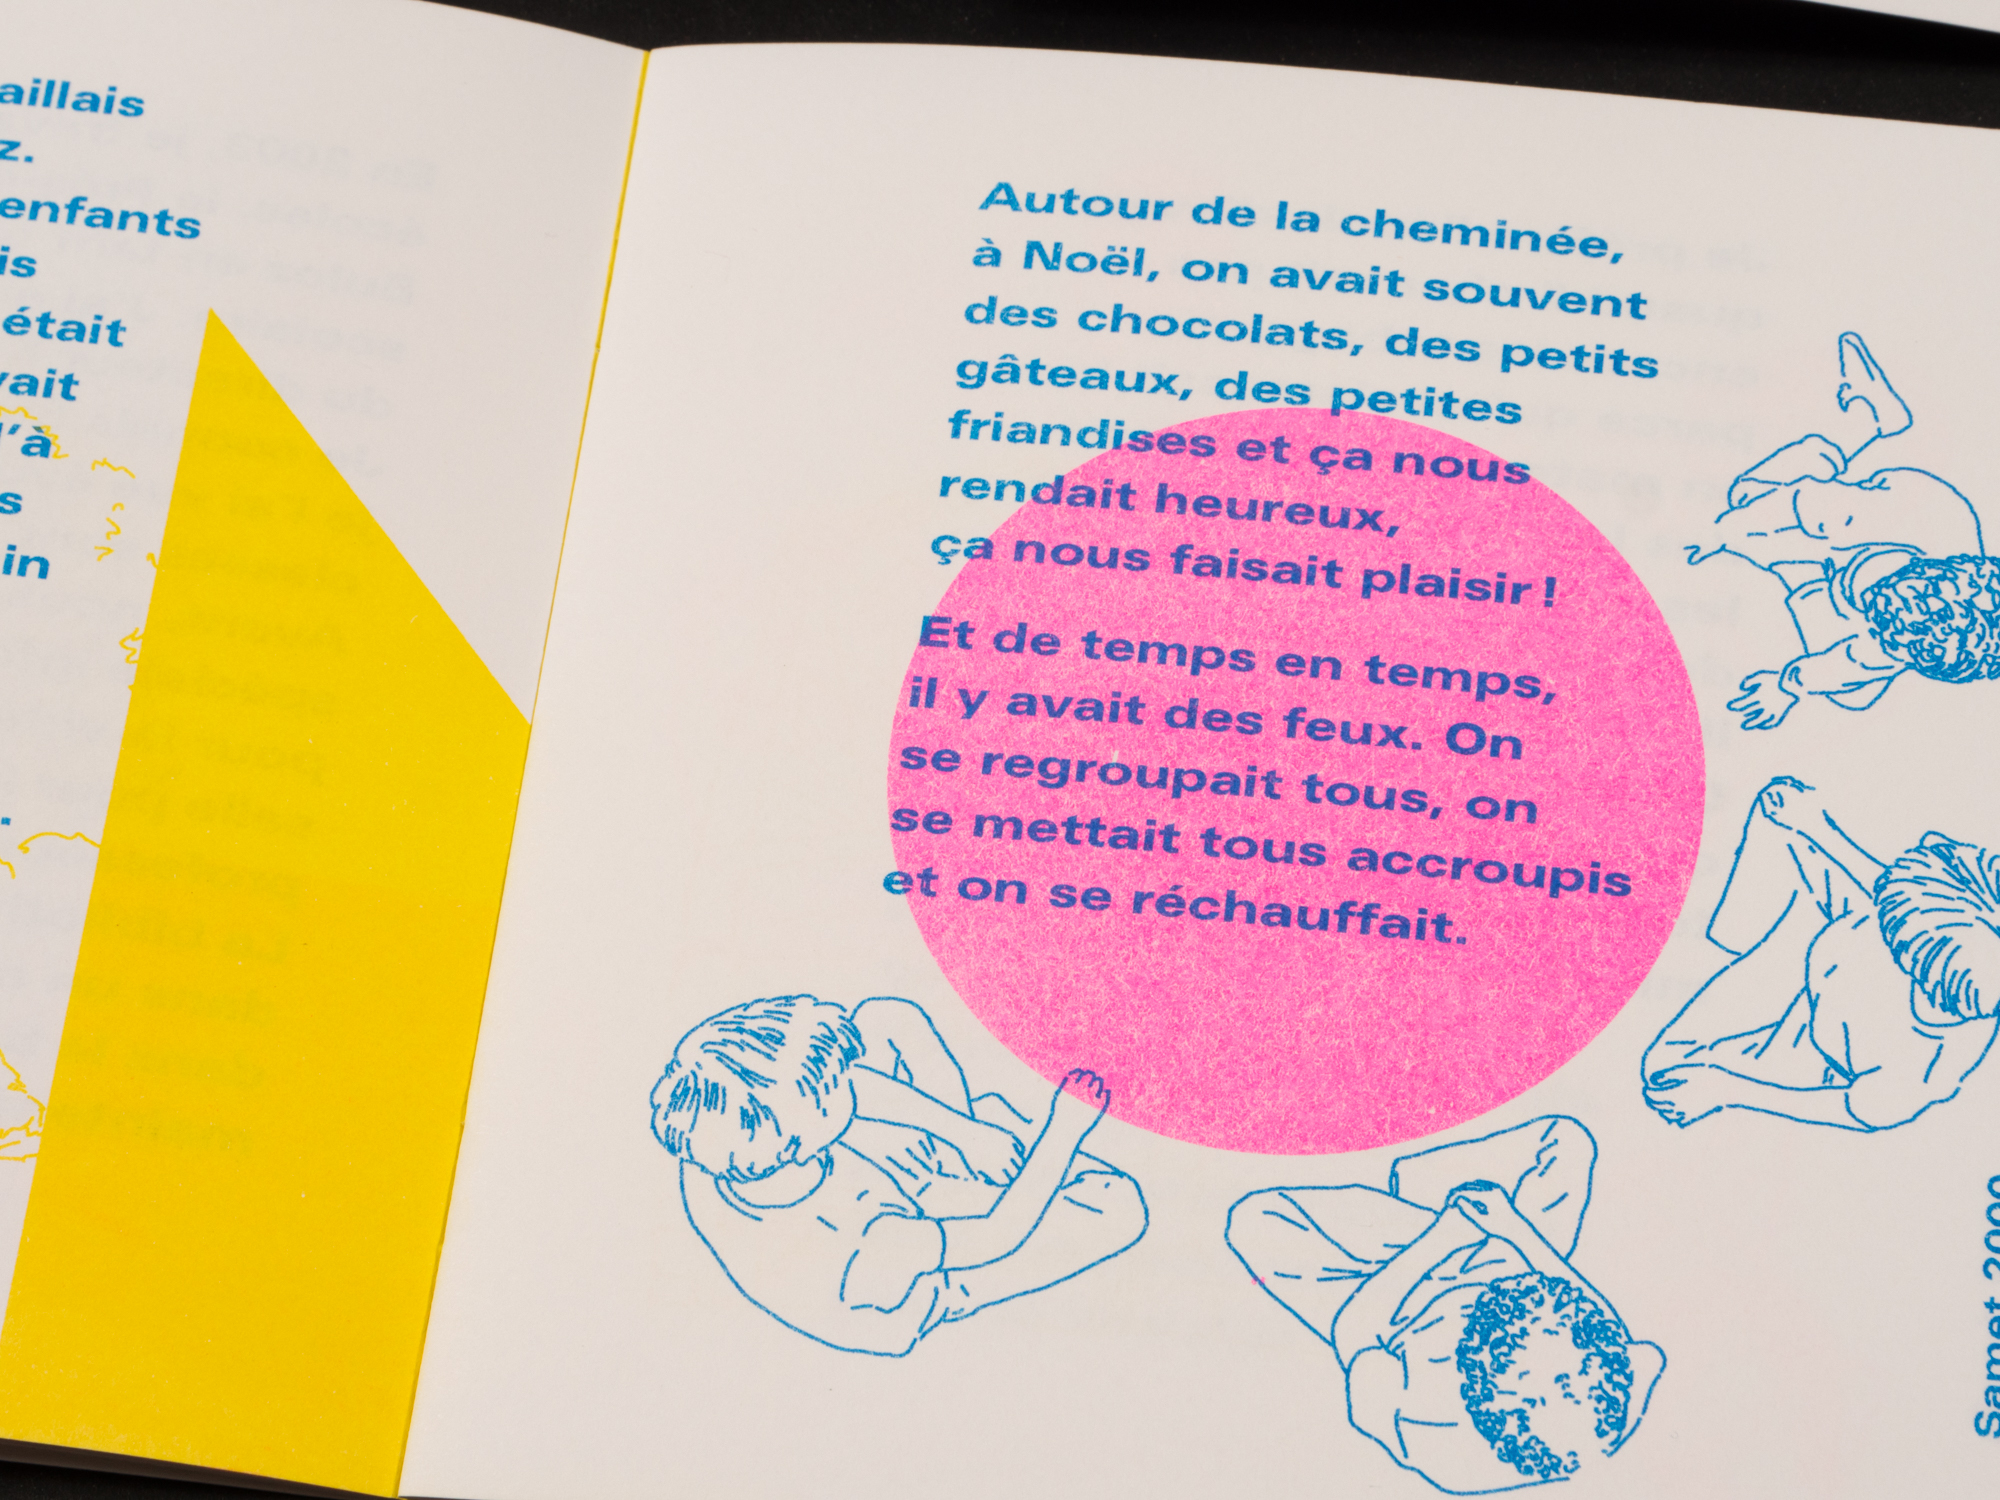 aillais
z.
enfants
is
était
vait
l'à
s
in
.
Autour de la cheminée,
à Noël, on avait souvent
des chocolats, des petits
gâteaux, des petites
friandises et ça nous
rendait heureux,
ça nous faisait plaisir !
Et de temps en temps,
il y avait des feux. On
se regroupait tous, on
se mettait tous accroupis
et on se réchauffait.
Samet 2000